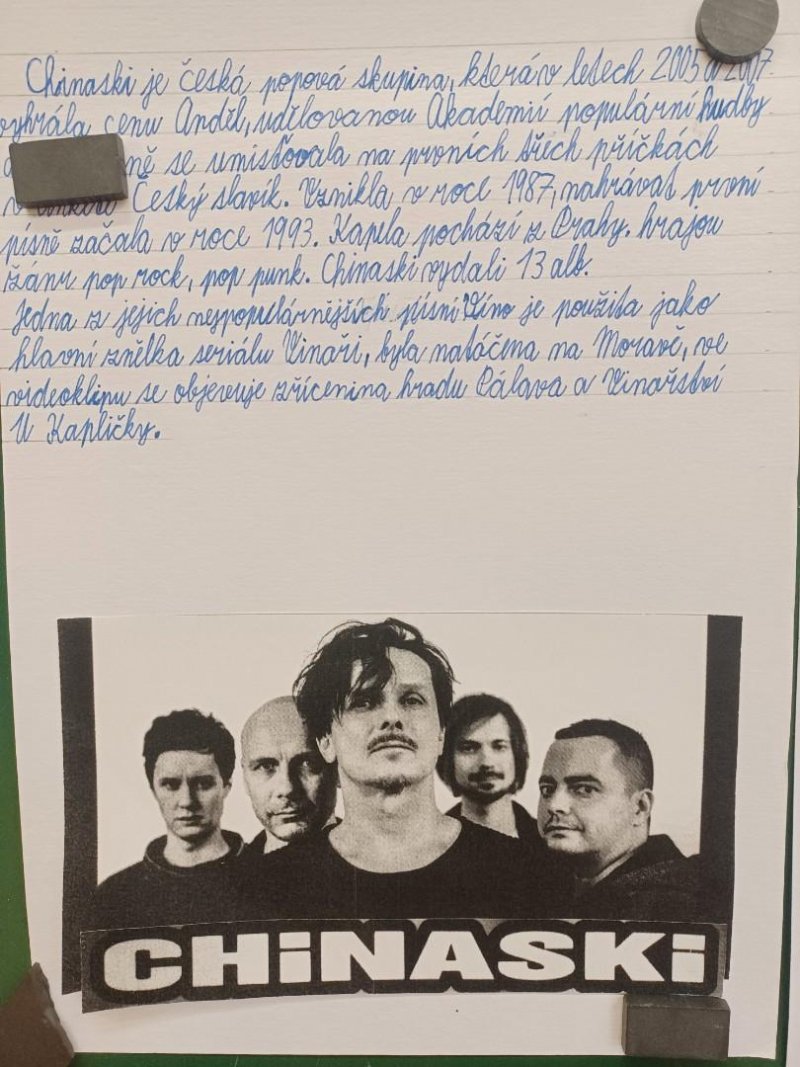 Chinaski je česká popová skupina, která v letech 2005 a 2007
vyhrála cenu Anděl, udělovanou Akademií populární hudby
ně se umisťovala na prvních třech příčkách
v Český slavík. Vznikla v roce 1987, nahrávat první
písně začala v roce 1993. Kapela pochází z Prahy. hrajou
žánr pop rock, pop punk. Chinaski vydali 13 alb.
Jedna z jejich nejpopulárnějších písní Víno je použita jako
hlavní znělka seriálu Vinaři, byla natáčena na Moravě, ve
videoklipu se objevuje zřícenina hradu Pálava a Vinařství
U Kapličky.
CHiNASKi